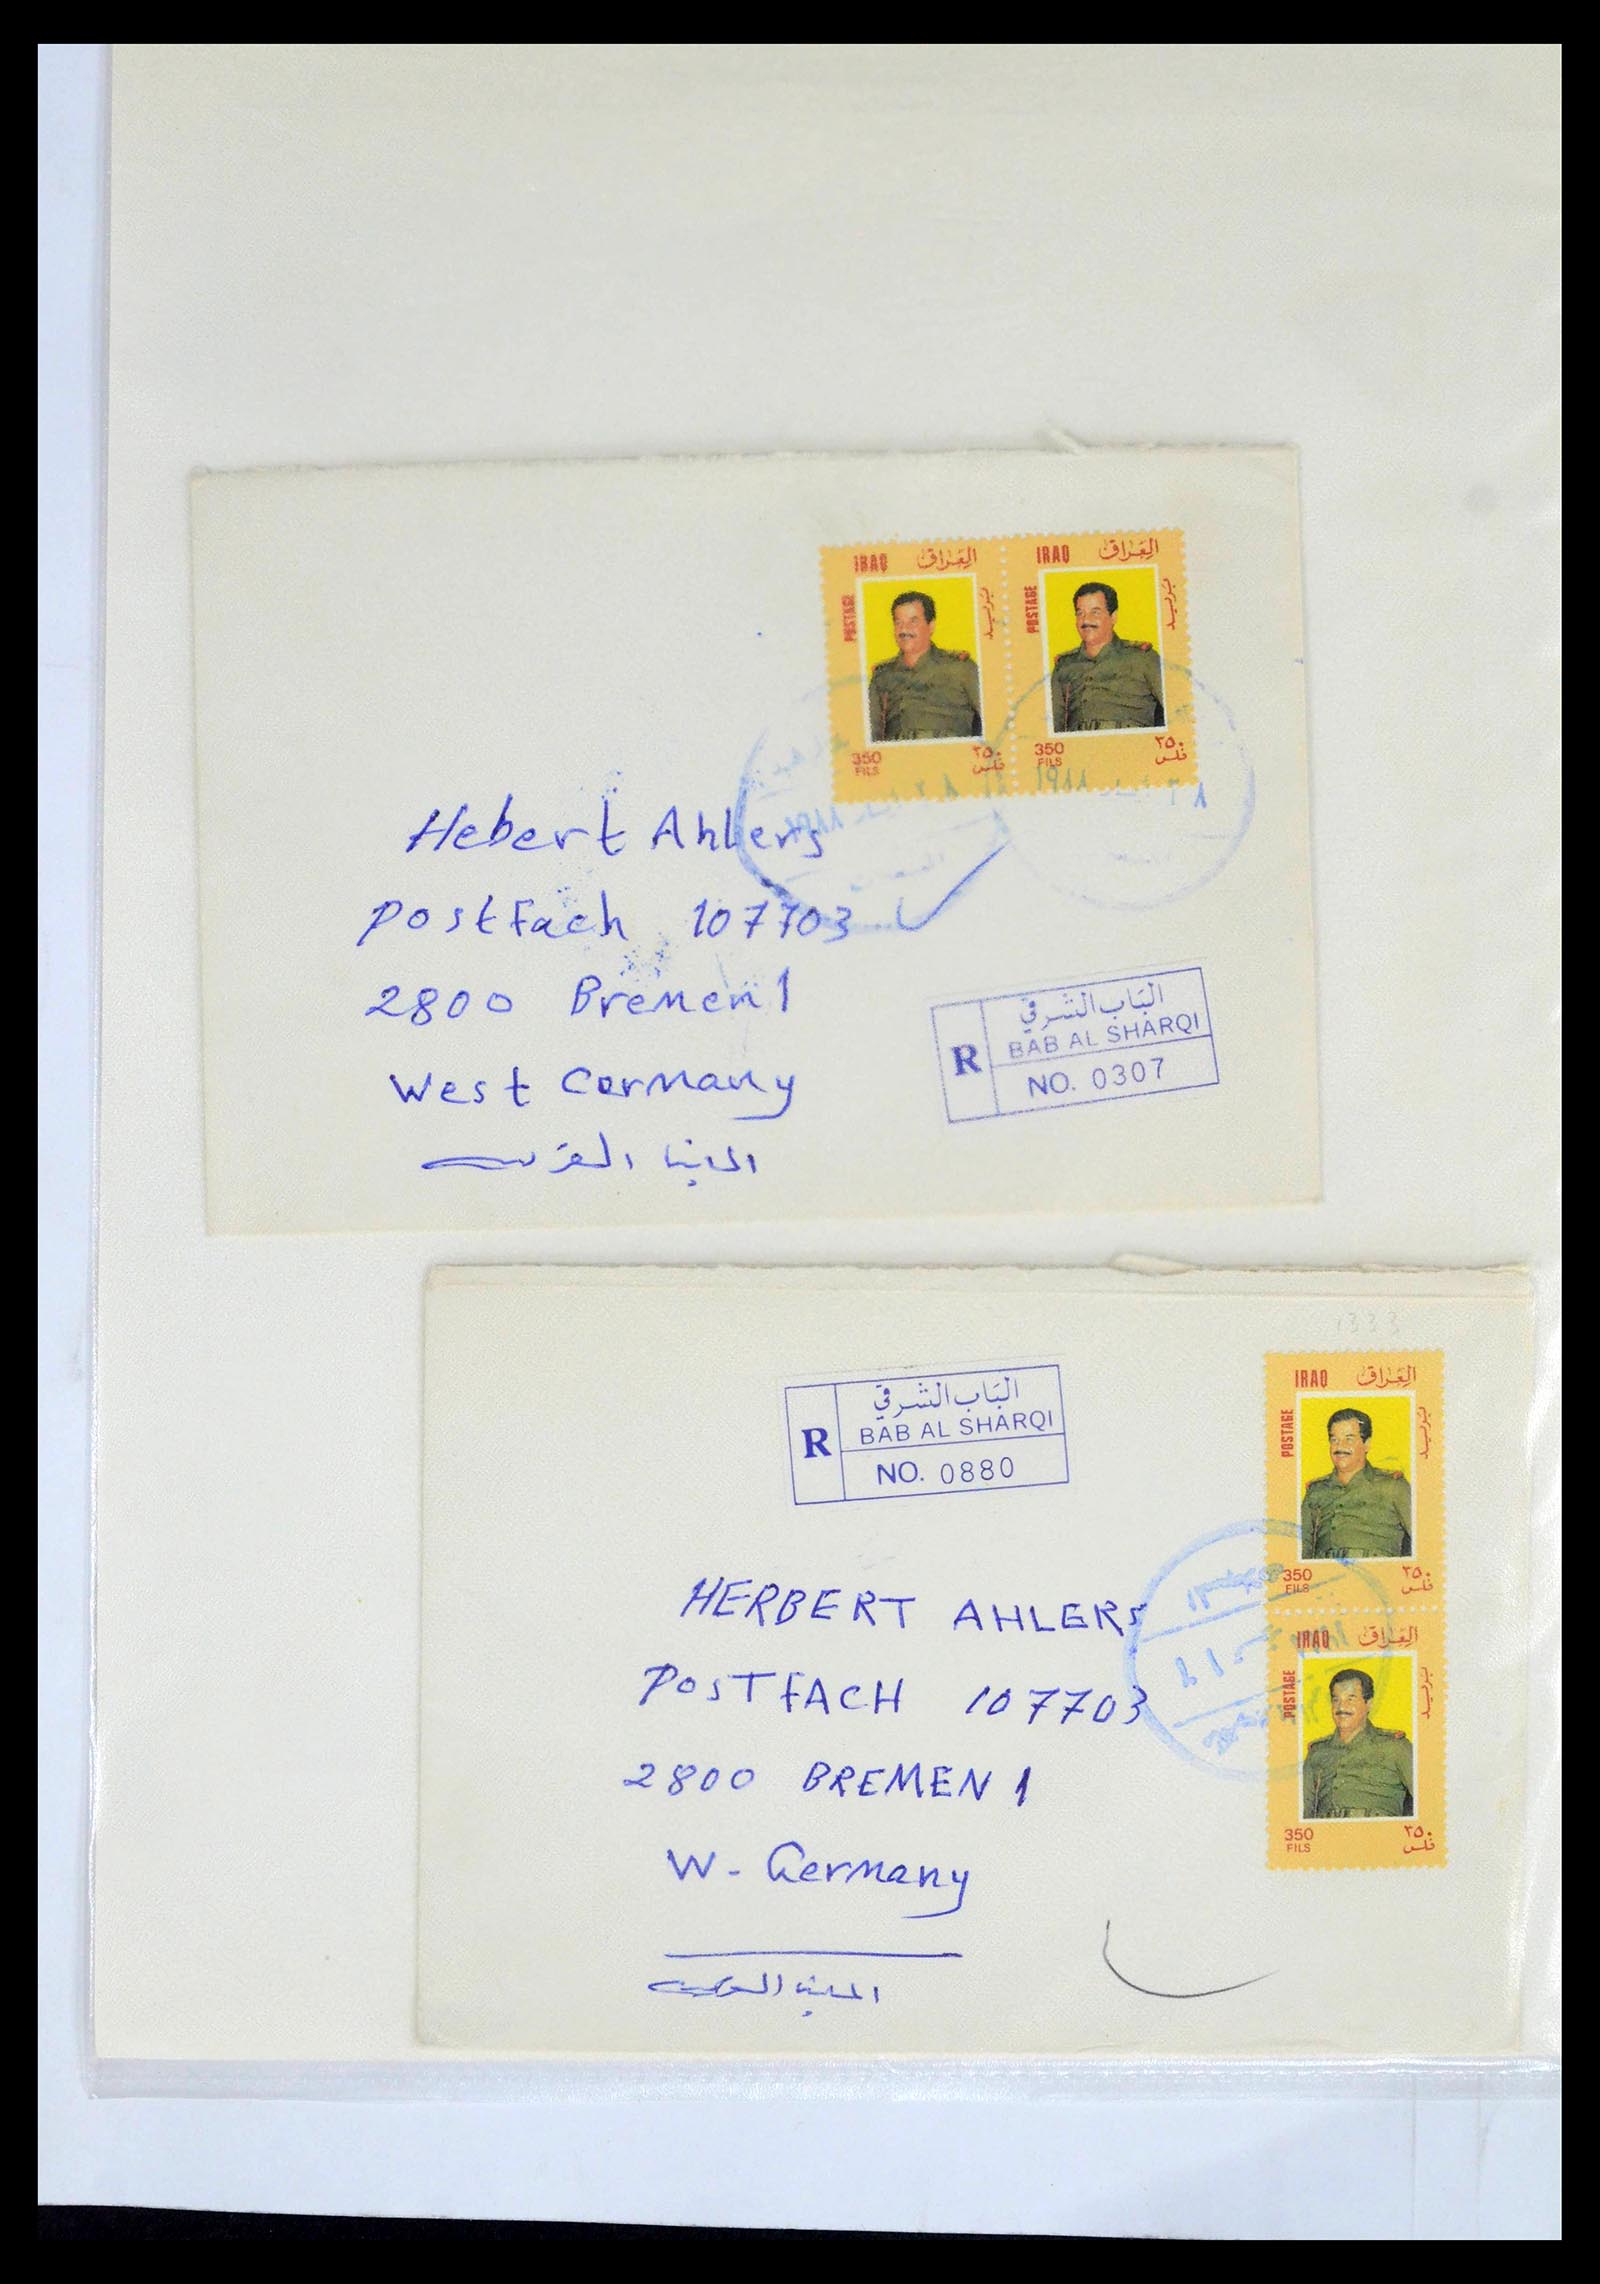 IRAQ العراق
POSTAGE
بريد
350 FILS
٣٥٠ فلس
IRAQ العراق
POSTAGE
بريد
350 FILS
٣٥٠ فلس
Hebert Ahlers
Postfach 107703
2800 Bremen 1
West Germany
المانيا الغربية
R
الباب الشرقي
BAB AL SHARQI
NO. 0307
1333
R
الباب الشرقي
BAB AL SHARQI
NO. 0880
IRAQ العراق
POSTAGE
بريد
350 FILS
٣٥٠ فلس
IRAQ العراق
POSTAGE
بريد
350 FILS
٣٥٠ فلس
HERBERT AHLERS
POSTFACH 107703
2800 BREMEN 1
W-Germany
المانيا الغربية